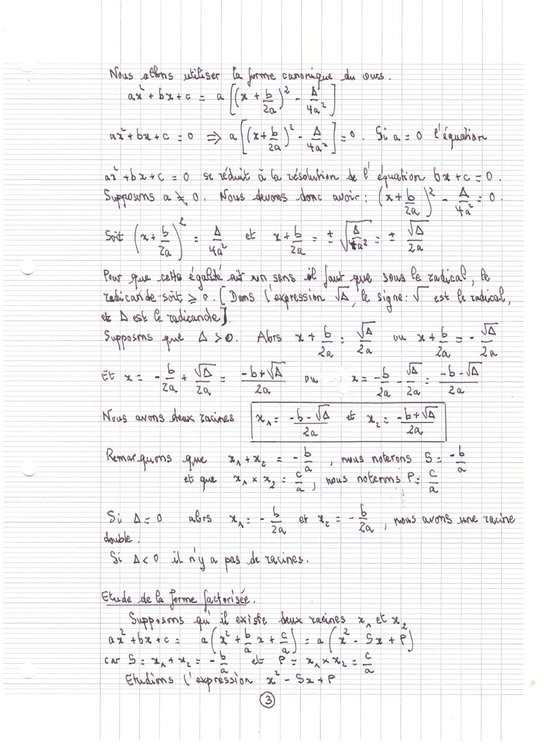 Nous allons utiliser la forme canonique du cours.
ax² + bx + c = a[(x + b/2a)² - Δ/4a²]
ax² + bx + c = 0 ⇒ a[(x + b/2a)² - Δ/4a²] = 0. Si a = 0 l'équation
ax² + bx + c = 0 se réduit à la résolution de l'équation bx + c = 0.
Supposons a ≠ 0. Nous devons donc avoir : (x + b/2a)² - Δ/4a² = 0.
Soit (x + b/2a)² = Δ/4a² et x + b/2a = ± √(Δ/4a²) = ± √Δ/2a
Pour que cette égalité ait un sens il faut que sous le radical, le
radicande soit ≥ 0. [Dans l'expression √Δ, le signe √ est le radical,
et Δ est le radicande].
Supposons que Δ > 0. Alors x + b/2a = √Δ/2a ou x + b/2a = - √Δ/2a
Et x = - b/2a + √Δ/2a = (-b + √Δ)/2a ou x = - b/2a - √Δ/2a = (-b - √Δ)/2a
Nous avons deux racines x₁ = (-b - √Δ)/2a et x₂ = (-b + √Δ)/2a
Remarquons que x₁ + x₂ = - b/a, nous noterons S = - b/a
et que x₁ × x₂ = c/a, nous noterons P = c/a
Si Δ = 0 alors x₁ = - b/2a et x₂ = - b/2a, nous avons une racine
double.
Si Δ < 0 il n'y a pas de racines.
Etude de la forme factorisée.
Supposons qu'il existe deux racines x₁ et x₂
ax² + bx + c = a(x² + b/a x + c/a) = a(x² - Sx + P)
car S = x₁ + x₂ = - b/a et P = x₁ × x₂ = c/a
Etudions l'expression x² - Sx + P
3